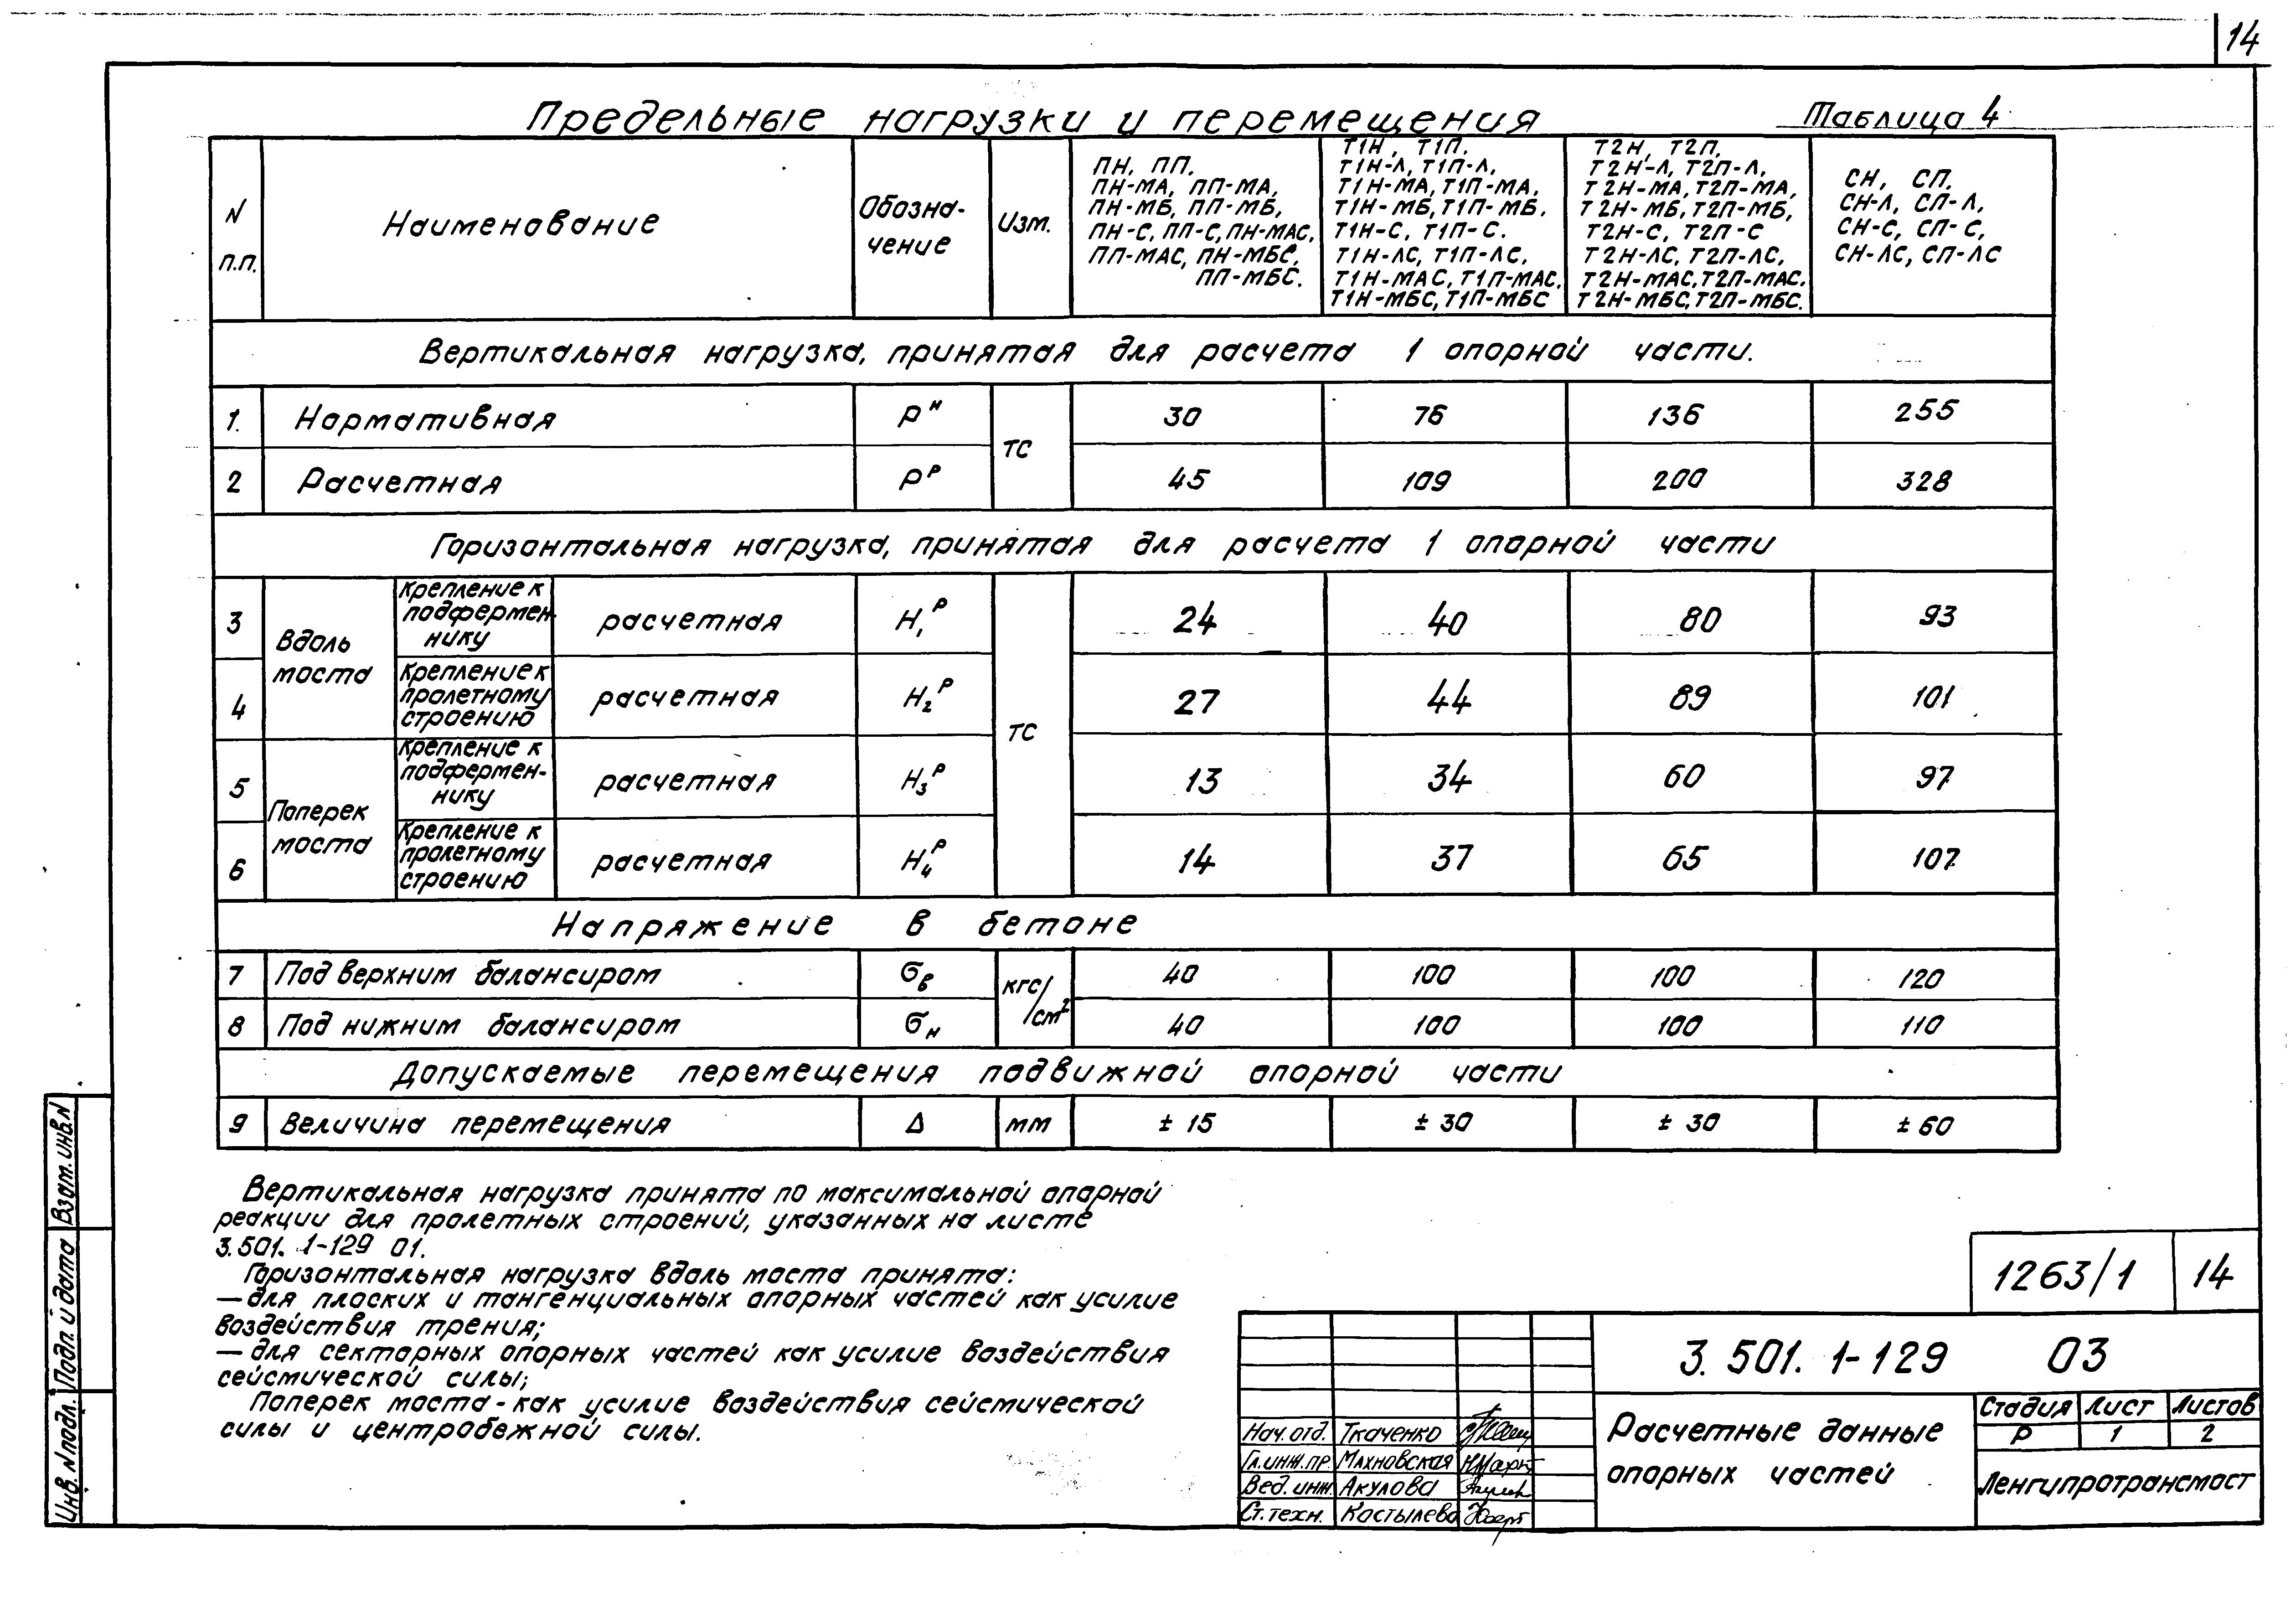 14
Предельные нагрузки и перемещения
Таблица 4
N п.п.
Наименование
Обозна-
чение
Изм.
ПН, ПП.
ПН-МА, ПП-МА,
ПН-МБ, ПП-МБ,
ПН-С, ПП-С, ПН-МАС,
ПП-МАС, ПН-МБС,
ПП-МБС.
Т1Н, Т1П.
Т1Н-Л, Т1П-Л,
Т1Н-МА, Т1П-МА,
Т1Н-МБ, Т1П-МБ.
Т1Н-С, Т1П-С.
Т1Н-ЛС, Т1П-ЛС,
Т1Н-МАС, Т1П-МАС,
Т1Н-МБС, Т1П-МБС
Т2Н, Т2П,
Т2Н-Л, Т2П-Л,
Т2Н-МА, Т2П-МА,
Т2Н-МБ, Т2П-МБ,
Т2Н-С, Т2П-С
Т2Н-ЛС, Т2П-ЛС,
Т2Н-МАС, Т2П-МАС.
Т2Н-МБС, Т2П-МБС.
СН, СП,
СН-Л, СП-Л,
СН-С, СП-С,
СН-ЛС, СП-ЛС
Вертикальная нагрузка, принятая для расчета 1 опорной части.
1. Нормативная Pᴴ тс 30 76 136 255
2 Расчетная Pᴾ 45 109 200 328
Горизонтальная нагрузка, принятая для расчета 1 опорной части
Вдоль
моста
3 Крепление к
подфермен-
нику
расчетная H₁ᴾ тс 24 40 80 93
4 Крепление к
пролетному
строению
расчетная H₂ᴾ 27 44 89 101
Поперек
моста
5 Крепление к
подфермен-
нику
расчетная H₃ᴾ 13 34 60 97
6 Крепление к
пролетному
строению
расчетная H₄ᴾ 14 37 65 107
Напряжение в бетоне
7 Под верхним балансиром σв кгс/см² 40 100 100 120
8 Под нижним балансиром σн 40 100 100 110
Допускаемые перемещения подвижной опорной части
9 Величина перемещения Δ мм ± 15 ± 30 ± 30 ± 60
Вертикальная нагрузка принята по максимальной опорной
реакции для пролетных строений, указанных на листе
3.501.1-129 01.
Горизонтальная нагрузка вдоль моста принята:
— для плоских и тангенциальных опорных частей как усилие
воздействия трения;
— для секторных опорных частей как усилие воздействия
сейсмической силы;
Поперек моста - как усилие воздействия сейсмической
силы и центробежной силы.
Взам. инв. N
Подп. и дата
Инв. N подл.
1263/1 14
3.501.1-129 03
Расчетные данные
опорных частей
Стадия Лист Листов
Р 1 2
Ленгипротрансмост
Нач. отд. Ткаченко
Гл. инж. пр. Махновская
Вед. инж. Акулова
Ст. техн. Костылева